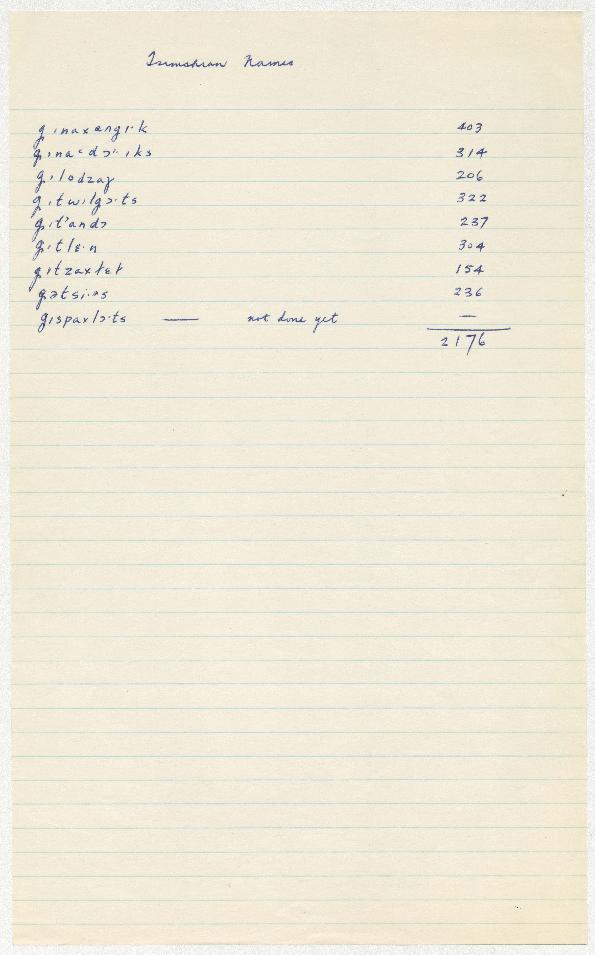 Tsimshian Names
g̣ınaxangı·k 403
g̣ına‘dɔ··ıks 314
g̣ılodzaʀ 206
g̣ıtwılgɔ·ts 322
g̣ıt'andɔ 237
g̣ıtlɛ·n 304
g̣ıtzaxłeł 154
g̣ətsi·əs 236
g̣ıspaxlɔ·ts — not done yet —
2176